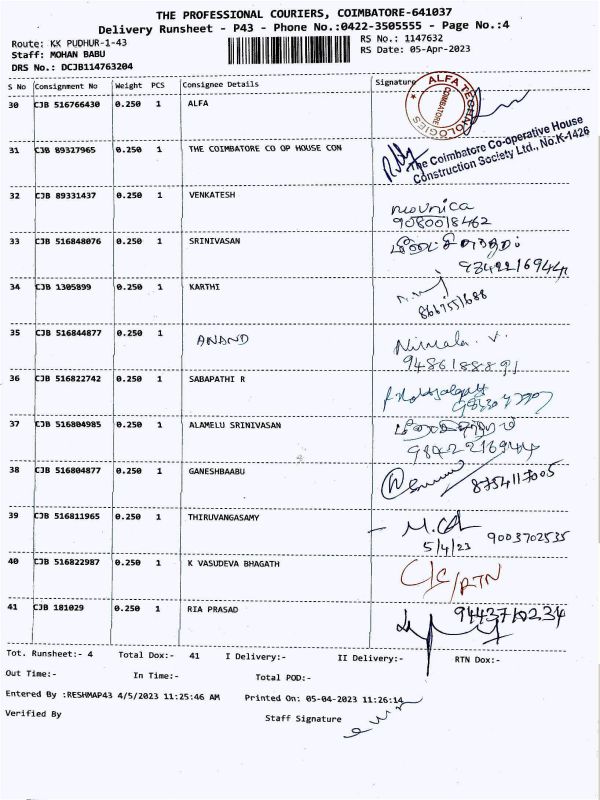 THE PROFESSIONAL COURIERS, COIMBATORE-641037
Delivery Runsheet - P43 - Phone No.:0422-3505555 - Page No.:4
Route: KK PUDHUR-1-43 RS No.: 1147632
Staff: MOHAN BABU RS Date: 05-Apr-2023
DRS No.: DCJB114763204
S No Consignment No Weight PCS Consignee Details Signature
30 CJB 516766430 0.250 1 ALFA
ALFA TECHNOLOGIES
COIMBATORE
31 CJB 89327965 0.250 1 THE COIMBATORE CO OP HOUSE CON
The Coimbatore Co-operative House
Construction Society Ltd., No.K-1426
32 CJB 89331437 0.250 1 VENKATESH
Mounica
9080018462
33 CJB 516848076 0.250 1 SRINIVASAN
9842216944
34 CJB 1305899 0.250 1 KARTHI
35 CJB 516844877 0.250 1 ANAND
Nirmala. V.
9486188891
36 CJB 516822742 0.250 1 SABAPATHI R
37 CJB 516804985 0.250 1 ALAMELU SRINIVASAN
9842216944
38 CJB 516804877 0.250 1 GANESHBAABU
8754117005
39 CJB 516811965 0.250 1 THIRUVANGASAMY
5/4/23 9003702535
40 CJB 516822987 0.250 1 K VASUDEVA BHAGATH
C/S/RTN
41 CJB 181029 0.250 1 RIA PRASAD
9443710234
Tot. Runsheet:- 4 Total Dox:- 41 I Delivery:- II Delivery:- RTN Dox:-
Out Time:- In Time:- Total POD:-
Entered By :RESHMAP43 4/5/2023 11:25:46 AM Printed On: 05-04-2023 11:26:14
Verified By Staff Signature